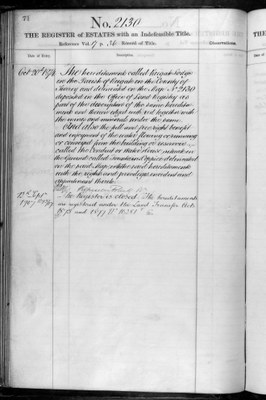 78
No. 2130
THE REGISTER of ESTATES with an Indefeasible Title.
Reference Vol. 9 p. 36 Record of Title.
Observations
Date of Entry
Description
Oct 20th 1874 The hereditaments called Reigate Lodge
in the Parish of Reigate in the County of
Surrey and delineated on the Map No 2130
deposited in the Office of Land Registry as
part of the description of the same heredita-
ments and thereon edged with red together with
the mines and minerals under the same
And also the full and free right benefit
and enjoyment of the water flowing or running
or conveyed from the building or reservoir
called the Conduit or Water House situate on
the Ground called
on the said Map with the said hereditaments
with the rights and privileges
appurtenant thereto
12th Sept
1907
The Register is closed. The hereditaments
are registered under the Land Transfer Acts
1875 and 1897